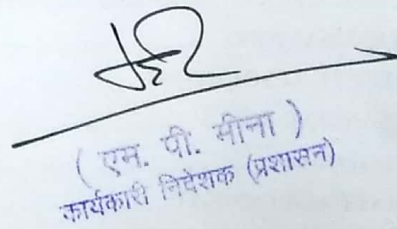 ( एम. पी. मीना )
कार्यकारी निदेशक (प्रशासन)